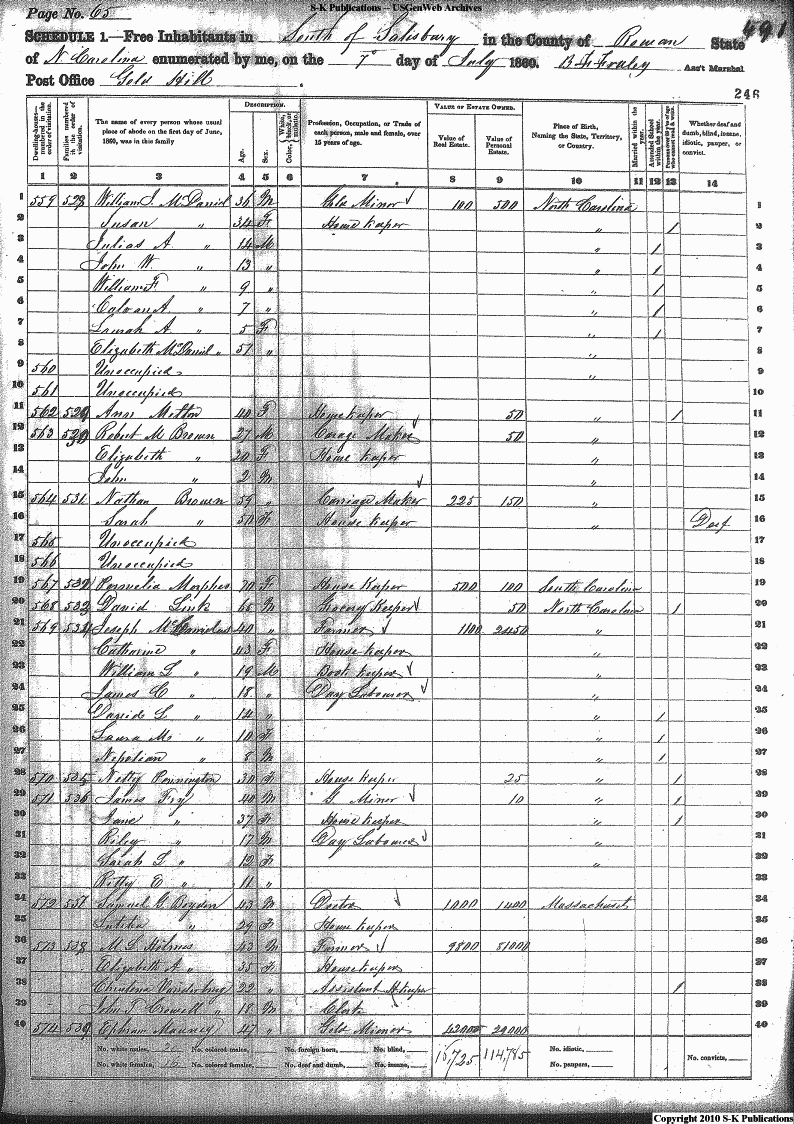 S-K Publications -- USGenWeb Archives
Page No. 65
491
SCHEDULE 1.—Free Inhabitants in South of Salisbury in the County of Rowan State
of N Carolina enumerated by me, on the 7" day of July 1860. Ass't Marshal
Post Office Gold Hill
246
Dwelling-houses—numbered in the order of visitation.
Families numbered in the order of visitation.
The name of every person whose usual place of abode on the first day of June, 1860, was in this family
DESCRIPTION.
Age.
Sex.
Color,
Profession, Occupation, or Trade of each person, male and female, over 15 years of age.
VALUE OF ESTATE OWNED.
Value of Real Estate.
Value of Personal Estate.
Place of Birth, Naming the State, Territory, or Country.
Married within the year.
Attended School within the year.
Whether deaf and dumb, blind, insane, idiotic, pauper, or convict.
1 2 3 4 5 6 7 8 9 10 11 12 13 14
1 559 528 William J. McDaniel 36 M Minor 100 500 North Carolina 1
2 Susan " 34 F House Keeper " 1 2
3 Julias A. " 14 M " 1 3
4 John W. " 13 " " 1 4
5 William F " 9 " " 1 5
6 Calvan A " 7 " " 1 6
7 Laurah A. " 5 F " 1 7
8 Elizabeth McDaniel " 51 " " 8
9 560 Unoccupied " 9
10 561 Unoccupied 10
11 562 529 Ann Melton 40 F House Keeper 50 " 1 11
12 563 530 Robert M Brown 27 M Carage Maker 50 " 12
13 Elizabeth " 20 F House Keeper " 13
14 John " 2 M " 14
15 564 531 Nathan Brown 59 " Carriage Maker 225 150 " 15
16 Sarah " 50 F House Keeper " Deef 16
17 565 Unoccupied 17
18 566 Unoccupied 18
19 567 532 Cornelia Morphes 70 F House Keeper 500 100 South Carolina 19
20 568 533 David Link 65 M Grocery Keeper 50 North Carolina 1 20
21 569 534 Joseph McCanielus 40 " Farmer 1100 2450 " 21
22 Catharine " 43 F House Keeper " 22
23 William L " 19 M Book Keeper " 23
24 James C " 18 " Day Laborer " 24
25 David L " 14 " " 1 25
26 Laura M " 10 F " 1 26
27 Nepolian " 8 M " 1 27
28 570 535 Netty Pennington 30 F House Keeper 25 " 1 28
29 571 536 James Fry 40 M G. Minor 10 " 1 29
30 Jane " 37 F House Keeper " 1 30
31 Riley " 17 M Day Laborer " 31
32 Sarah L " 12 F " 32
33 Bitty E " 11 " 33
34 572 537 Samuel G Boyden 43 M Doctor 1000 1400 Massachusets 34
35 29 F House Keeper 35
36 573 538 M. L. Holmes 43 M Farmer 9800 51000 36
37 Elizabeth A " 35 F House Keeper 37
38 Christena Vanderburg 22 " Assistant H Keeper 1 38
39 John J. Crowell " 18 M Clerk 39
40 574 539 Ephram Mauney 47 " Gold Mionor 42000 29000 40
No. white males, No. colored males, No. foreign born, No. blind, 16,725 114,785 No. idiotic, No. convicts,
No. white females, No. colored females, No. deaf and dumb, No. insane, No. paupers,
Copyright 2010 S-K Publications